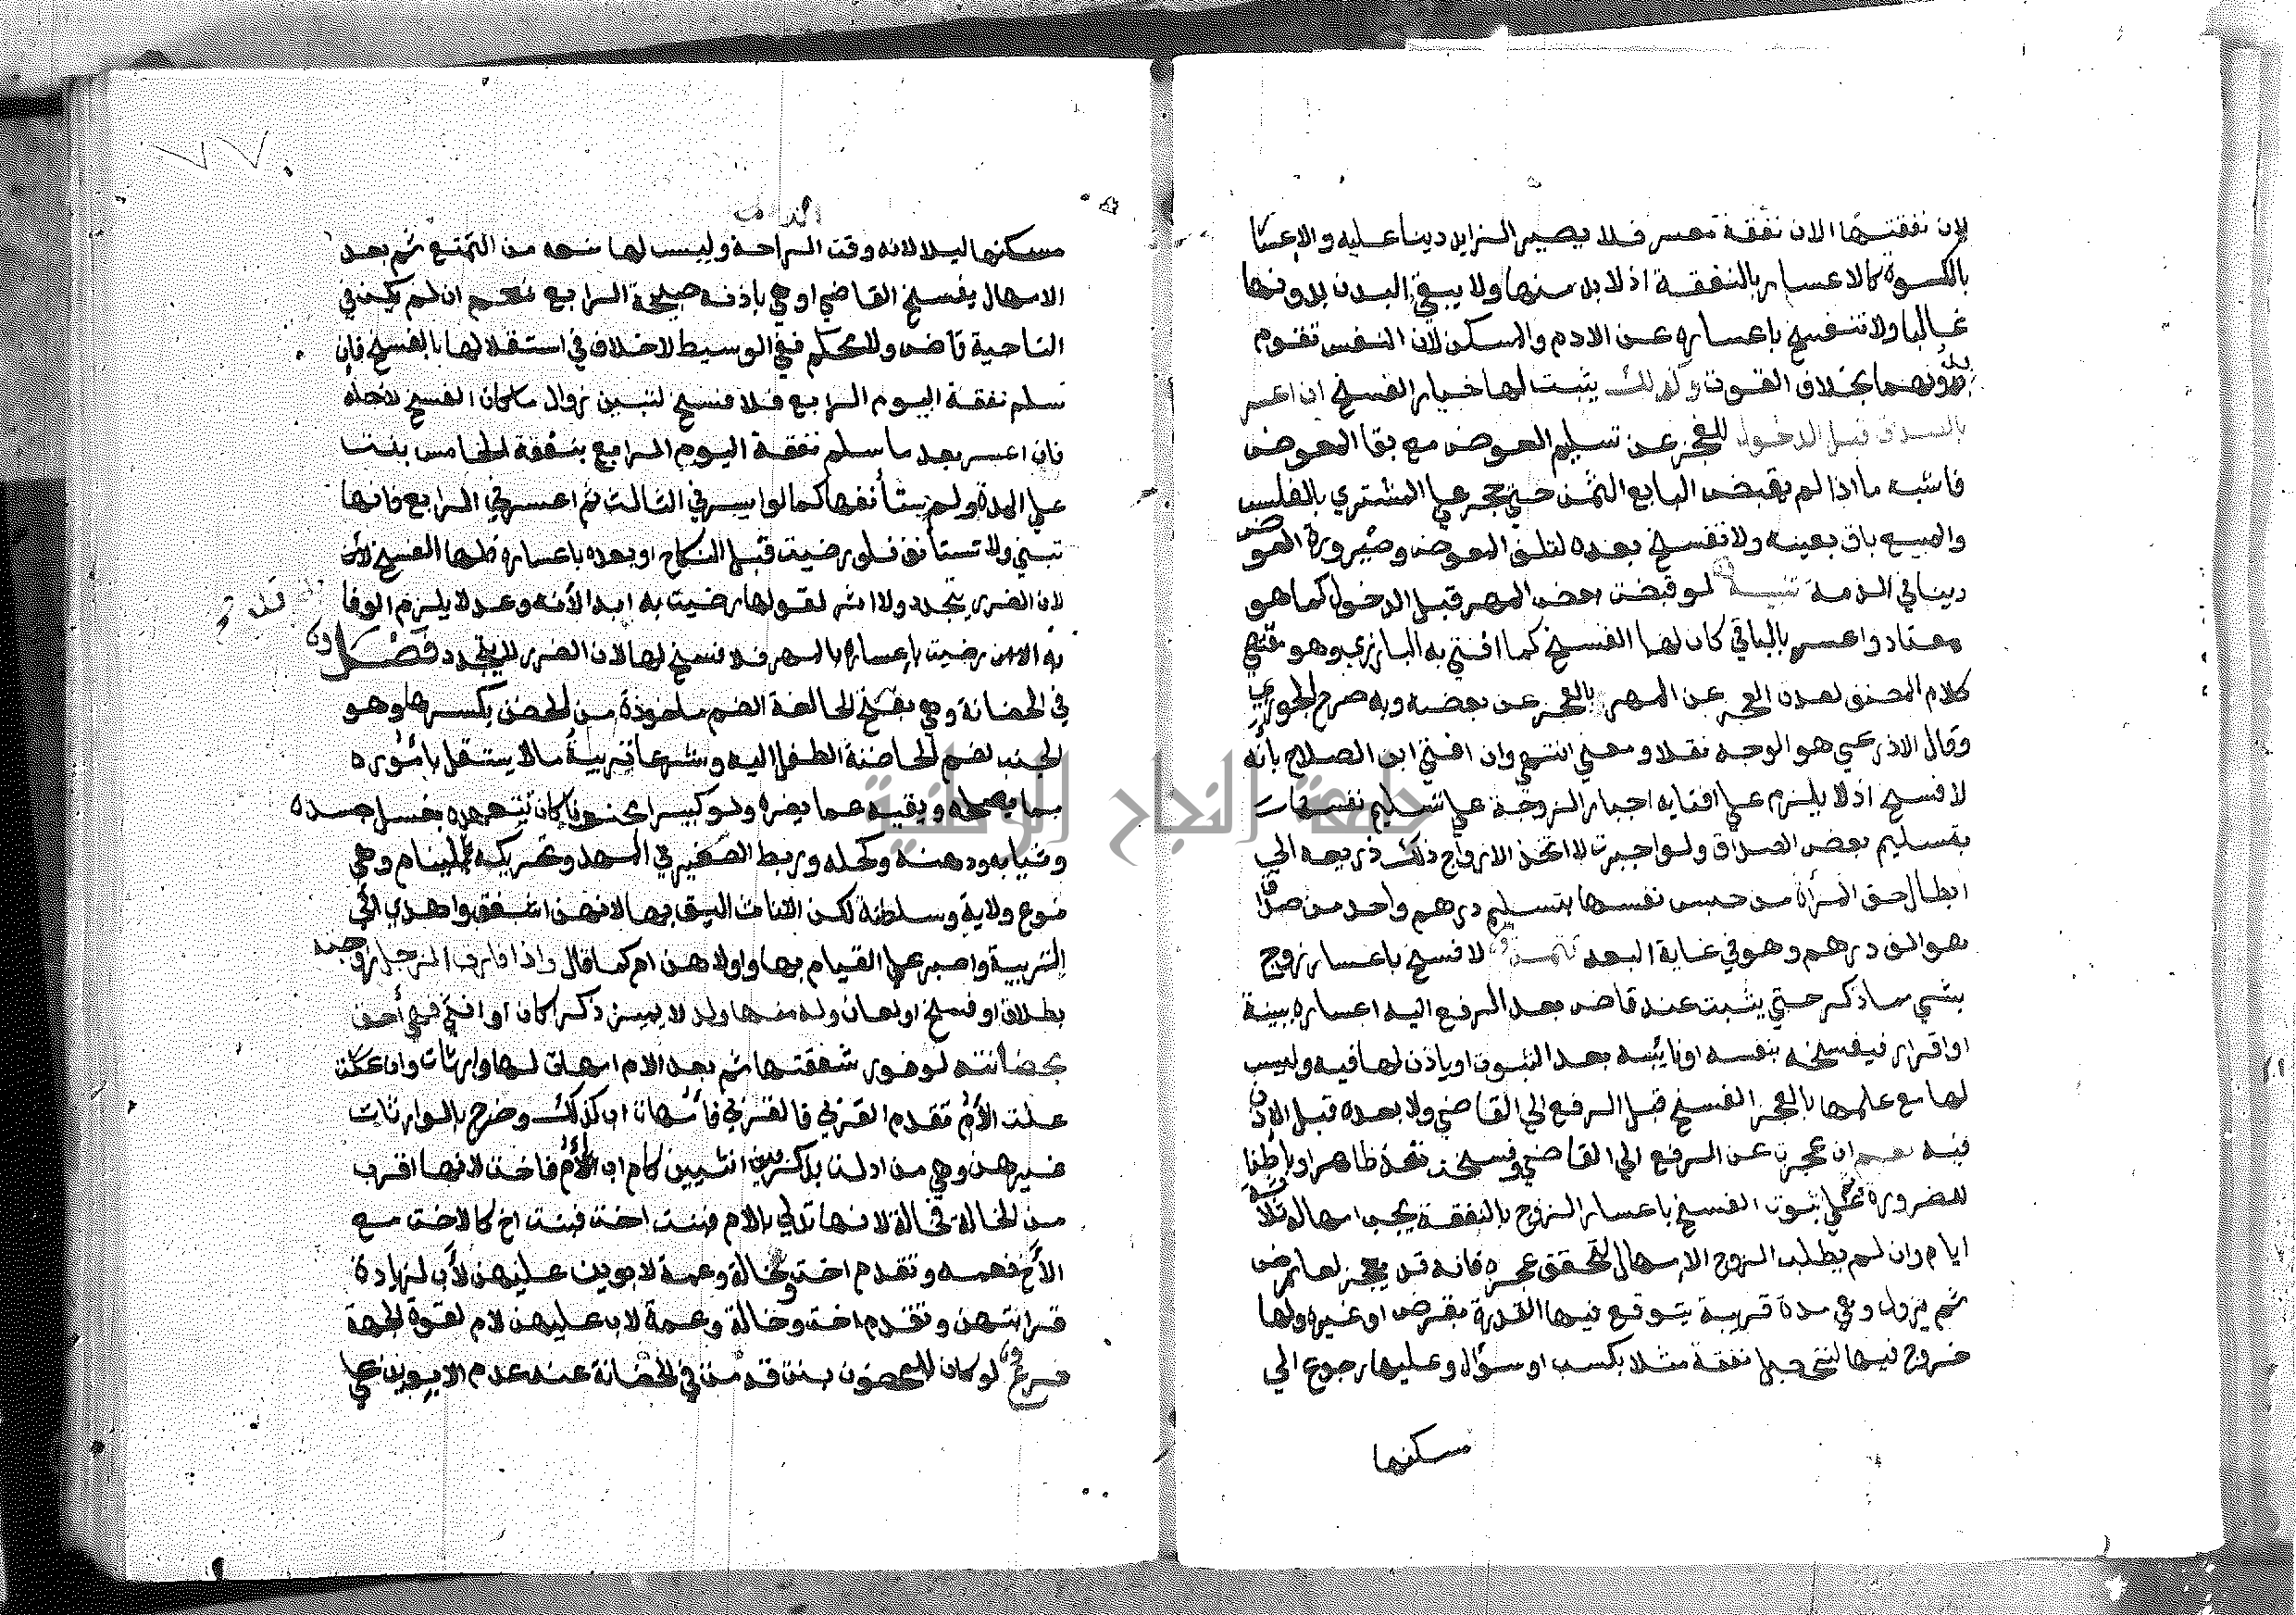 لان نفقتها الان نفقة معسر فلا يصير الزايد دينا عليه والاعسار
بالكسوة كالاعسار بالنفقة اذ لا بد منها ولا يبقي البدن بدونها
غالبا ولا تنفسخ باعساره عن الادم والمسكن لان النفس تقوم
بدونهما بخلاف القوت وكذلك يثبت لها خيار الفسخ ان اعسر
بالصداق قبل الدخول للعجز عن تسليم العوض مع بقا المعوض
فاشبه ما اذا لم يقبض البايع الثمن حتي حجر علي المشتري بالفلس
والمبيع باق بعينه ولا تفسخ بعده لتلف المعوض وصيرورة العوض
دينا في الذمة تنبيه لو قبضت بعض المهر قبل الدخول كما هو
معتاد واعسر بالباقي كان لها الفسخ كما افتي به البارزي وهو مقتضي
كلام المصنف لصدق العجز عن المهر بالعجز عن بعضه وبه صرح الجوري
وقال الاذرعي هو الوجه نقلا ومعني انتهي وان افتي ابن الصلاح بانه
لا فسخ اذ لا يلزم علي افتايه اجبار الزوجة علي تسليم نفسها
بتسليم بعض الصداق ولو اجبرت لاتخذ الازواج ذلك ذريعه الي
ابطال حق المرأة من حبس نفسها بتسليم درهم واحد من صداق
هو الف درهم وهو في غاية البعد تتمة لا فسخ باعسار زوج
بشي مما ذكر حتي يثبت عند قاض بعد الرفع اليه اعساره ببينة
او اقرار فيفسخه بنفسه او نايبه بعد الثبوت او ياذن لها فيه وليس
لها مع علمها بالعجز الفسخ قبل الرفع الي القاضي ولا بعده قبل الاذن
فيه نعم ان عجزت عن الرفع الي القاضي وفسخت نفذ ظاهرا وباطنا
للضرورة ثم علي ثبوت الفسخ باعسار الزوج بالنفقة يجب امهاله ثلاثة
ايام وان لم يطلب الزوج الامهال لتحقق عجزه فانه قد يعجز لعارض
ثم يزول وهي مدة قريبة يتوقع فيها القدرة بقرض او غيره ولها
خروج فيها لتحصيل نفقة مثلا بكسب او سؤال وعليها رجوع الي
مسكنها
٧٧
مسكنها ليلا لانه وقت الراحة وليس لها منعه من التمتع ثم بعد
الامهال يفسخ القاضي او هي باذنه صبيحة الرابع نعم ان لم يكن في
الناحية قاض ولا محكم ففي الوسيط لا خلاف في استقلالها بالفسخ فان
سلم نفقة اليوم الرابع فلا فسخ لتبين زوال ما كان الفسخ لاجله
فان اعسر بعد ما سلم نفقة اليوم الرابع بنفقة الخامس بنت
علي المدة ولم يستأنفها كما لو ايسر في الثالث ثم اعسر في الرابع فانها
تبني ولا تستأنف فلو رضيت قبل النكاح او بعده باعساره فلها الفسخ لان
لان الضرر يتجدد ولا اثر لقولها رضيت به ابدا لانه وعد لا يلزم الوفا
به الا من رضيت باعساره بالمهر فلا فسخ لها لان الضرر لا يتجدد فصل
في الحضانة وهي بفتح الحا لغة الضم ماخوذة من الحضن بكسرها وهو
الجنب لضم الحاضنة الطفل اليه وشرعا تربية ما لا يستقل باموره
بما يصلحه ويقيه عما يضره ولو كبيرا مجنونا كان تتعهده بغسل جسده
وثيابه ودهنه وكحله وربط الصغير في المهد وتحريكه لينام وهي
نوع ولاية وسلطنة لكن الاناث اليق بها لانهن اشفق واهدي الي
التربية واصبر علي القيام بها واولاهن ام كما قال واذا فارق الرجل زوجته
بطلاق او فسخ او لعان وله منها ولد لا يميز ذكرا كان او انثي فهي أحق
بحضانته لوفور شفقتها ثم بعد الام امهات لها وارثات وان علت
علت الأم تقدم القربي فالقربي فأمهات اب كذلك وخرج بالوارثات
غيرهن وهي من ادلت بذكر بين انثيين كام اب الأم فاخت لانها اقرب
من الخالة فخالة لانها تدلي بالام فبنت اخت فبنت اخ كالاخت مع
الأخ فعمه وتقدم اخت وخالة وعمة لابوين عليهن لأب لزيادة
قرابتهن وتقدم اخت وخالة وعمة لاب عليهن لام لقوة الجهة
فرع لو كان للمحضون بنت قدمت في الحضانة عند عدم الابوين علي
جامعة النجاح الوطنية